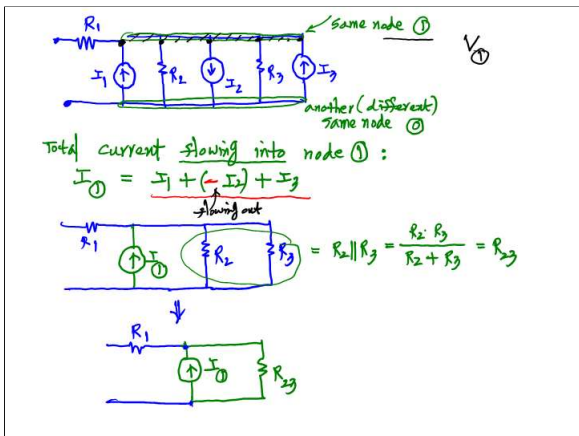 R1
same node ①
V①
I1
R2
I2
R3
I3
another (different)
same node ⓪
Total current flowing into node ① :
I① = I1 + (- I2) + I3
flowing out
R1
I①
R2
R3
= R2 || R3 = R2 · R3 / R2 + R3 = R23
R1
I①
R23